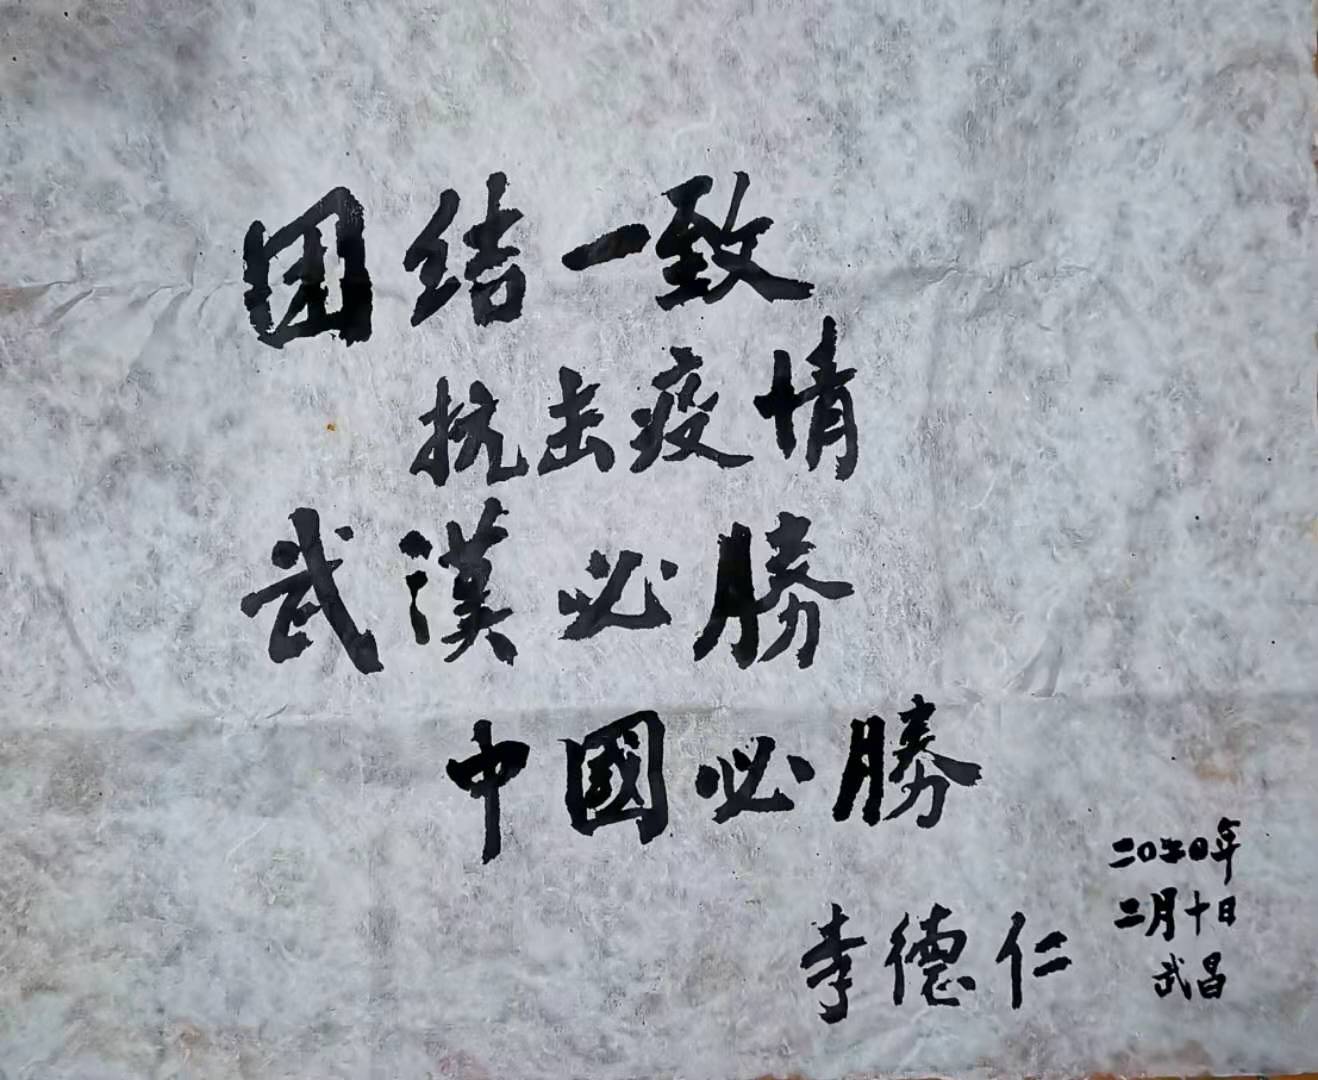 团结一致
抗击疫情
武漢必勝
中國必勝
李德仁
二〇二〇年
二月十日
武昌